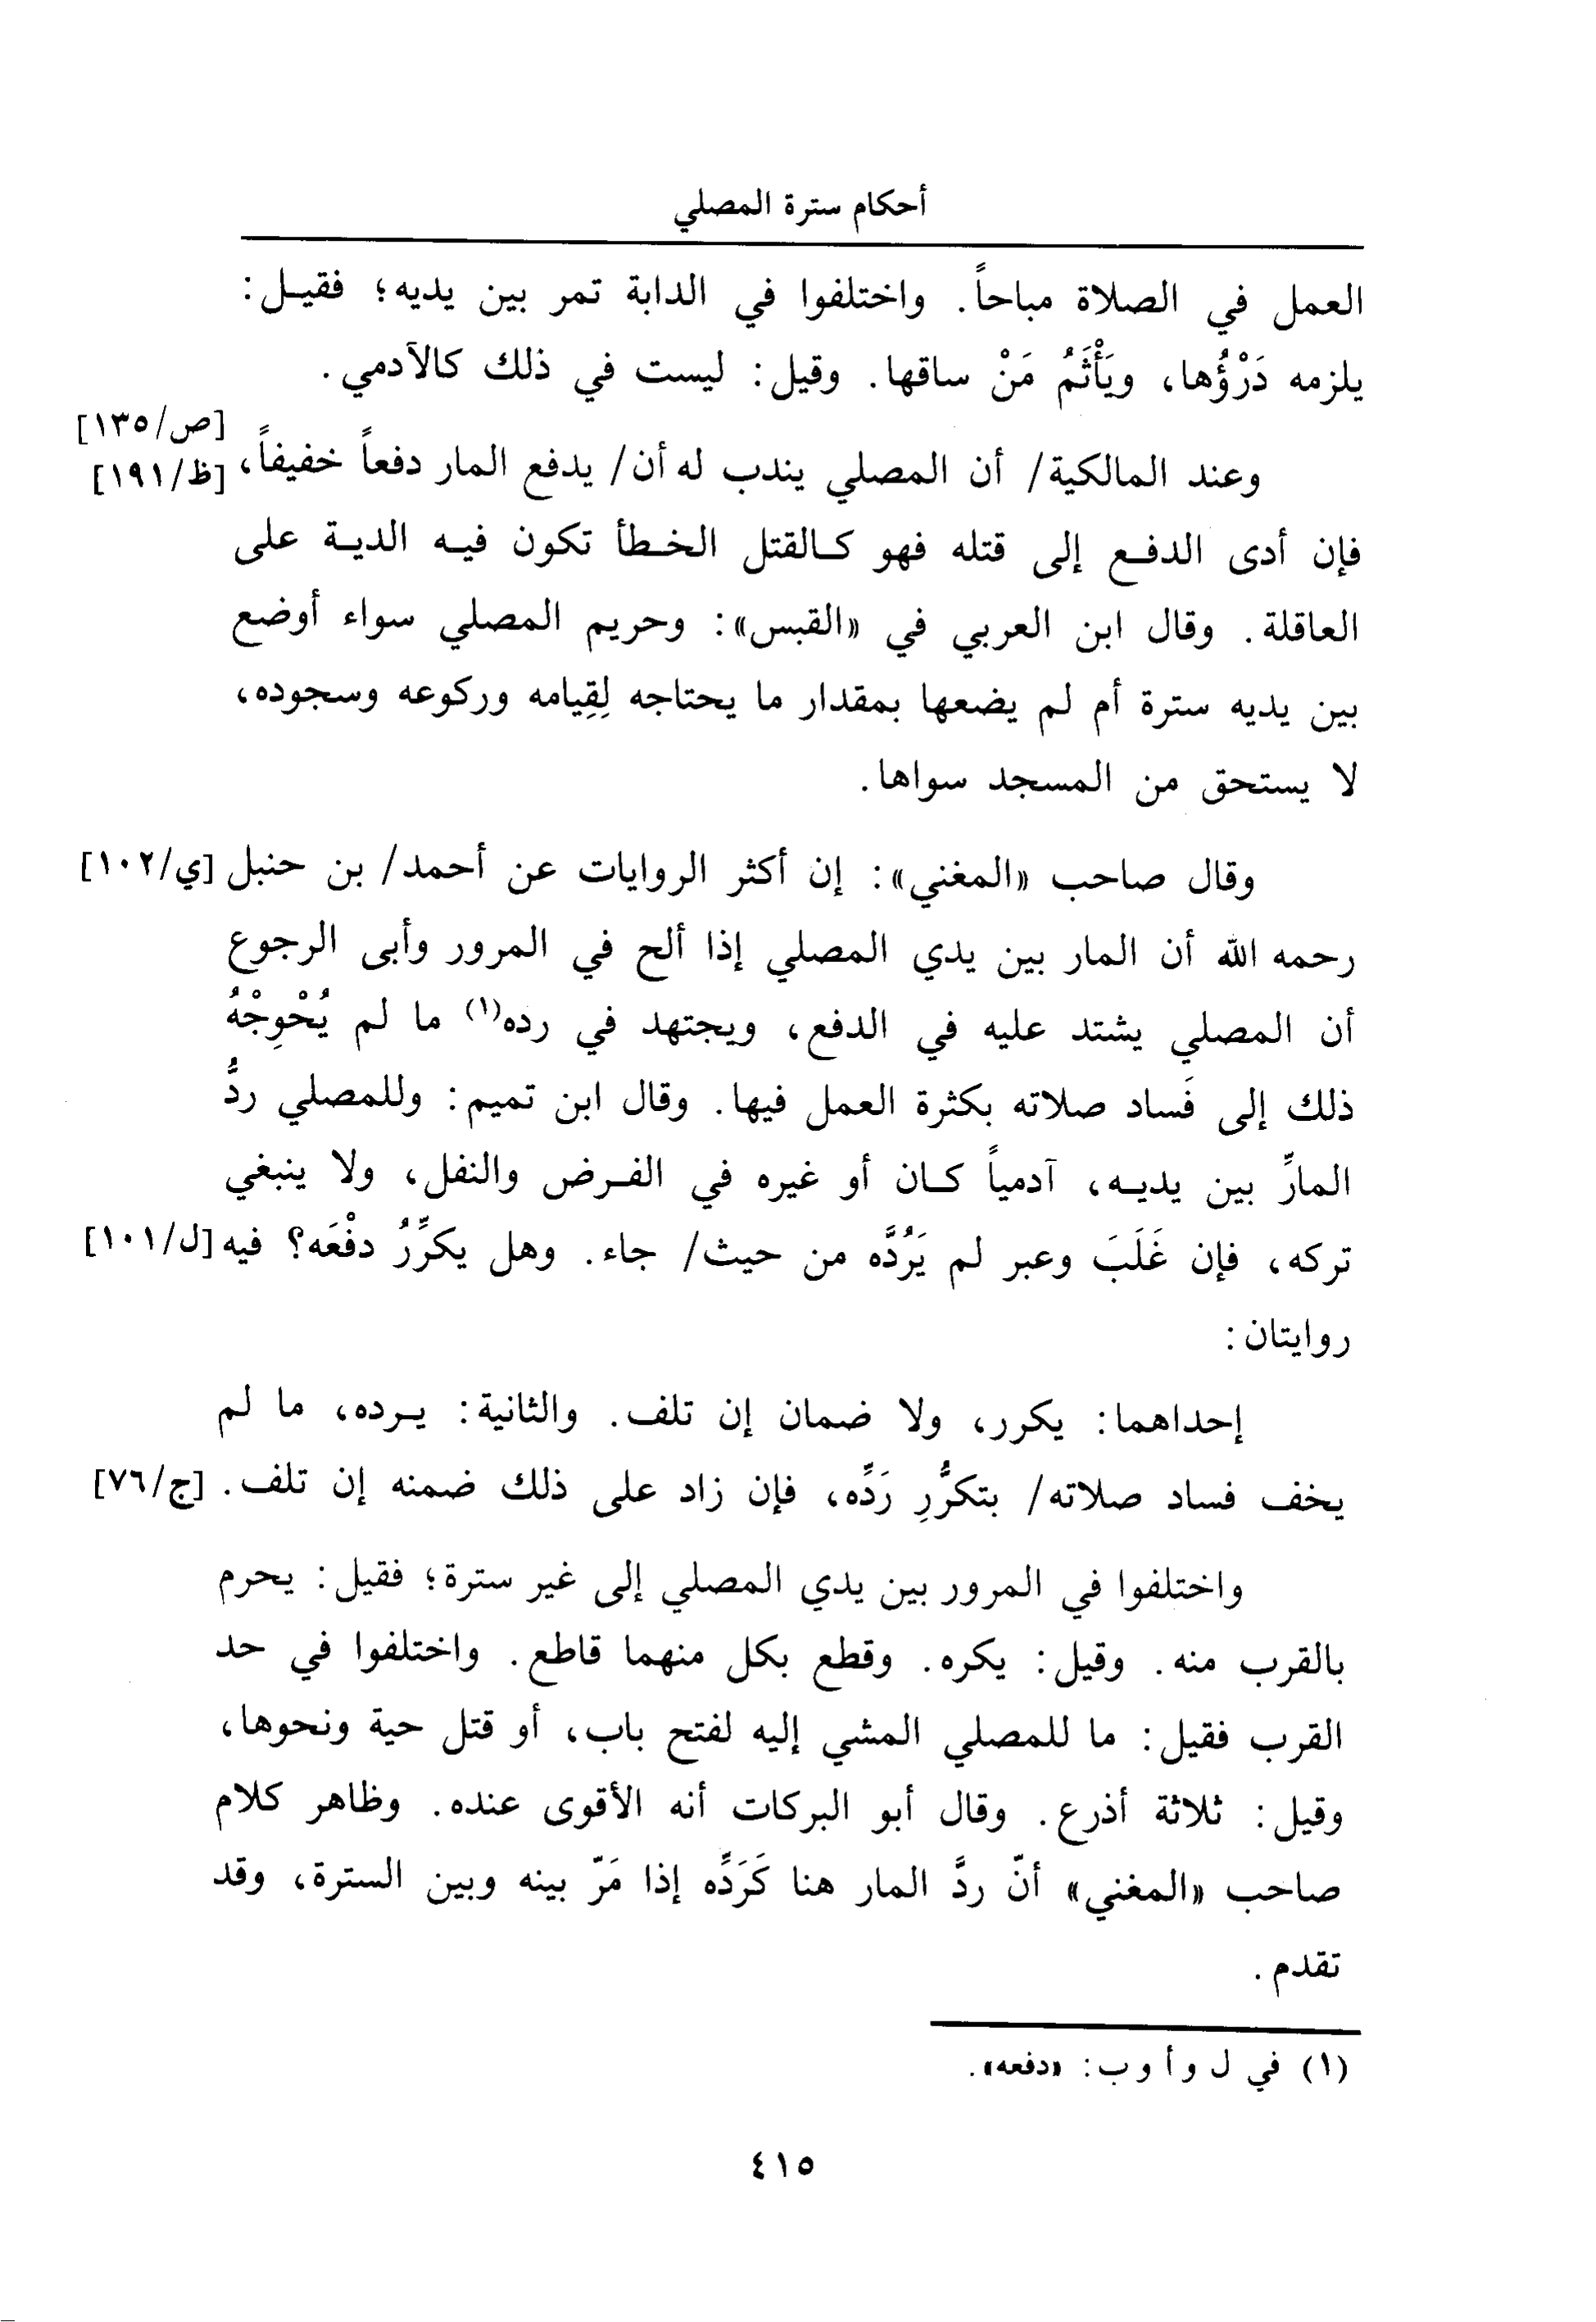 أحكام سترة المصلي
العمل في الصلاة مباحاً. واختلفوا في الدابة تمر بين يديه؛ فقيـل:
يلزمه دَرْؤُها، ويَأْثَمُ مَنْ ساقها. وقيل: ليست في ذلك كالآدمي.
[ص/١٣٥]
وعند المالكية/ أن المصلي يندب له أن/ يدفع المار دفعاً خفيفاً، [ظ/١٩١]
فإن أدى الدفـع إلى قتله فهو كـالقتل الخـطأ تكون فيـه الديـة على
العاقلة. وقال ابن العربي في «القبس»: وحريم المصلي سواء أوضع
بين يديه سترة أم لم يضعها بمقدار ما يحتاجه لِقِيامه وركوعه وسجوده،
لا يستحق من المسجد سواها.
وقال صاحب «المغني»: إن أكثر الروايات عن أحمد/ بن حنبل [ي/١٠٢]
رحمه الله أن المار بين يدي المصلي إذا ألح في المرور وأبى الرجوع
أن المصلي يشتد عليه في الدفع، ويجتهد في رده(١) ما لم يُحْوِجْهُ
ذلك إلى فَساد صلاته بكثرة العمل فيها. وقال ابن تميم: وللمصلي ردُّ
المارِّ بين يديـه، آدمياً كـان أو غيره في الفـرض والنفل، ولا ينبغي
تركه، فإن غَلَبَ وعبر لم يَرُدَّه من حيث/ جاء. وهل يكرِّرُ دفْعَه؟ فيه [ل/١٠١]
روايتان:
إحداهما: يكرر، ولا ضمان إن تلف. والثانية: يـرده، ما لم
يخف فساد صلاته/ بتكرُّرِ رَدِّه، فإن زاد على ذلك ضمنه إن تلف. [ج/٧٦]
واختلفوا في المرور بين يدي المصلي إلى غير سترة؛ فقيل: يحرم
بالقرب منه. وقيل: يكره. وقطع بكل منهما قاطع. واختلفوا في حد
القرب فقيل: ما للمصلي المشي إليه لفتح باب، أو قتل حية ونحوها،
وقيل: ثلاثة أذرع. وقال أبو البركات أنه الأقوى عنده. وظاهر كلام
صاحب «المغني» أنّ ردَّ المار هنا كَرَدِّه إذا مَرّ بينه وبين السترة، وقد
تقدم.
(١) في ل و أ و ب: «دفعه».
٤١٥